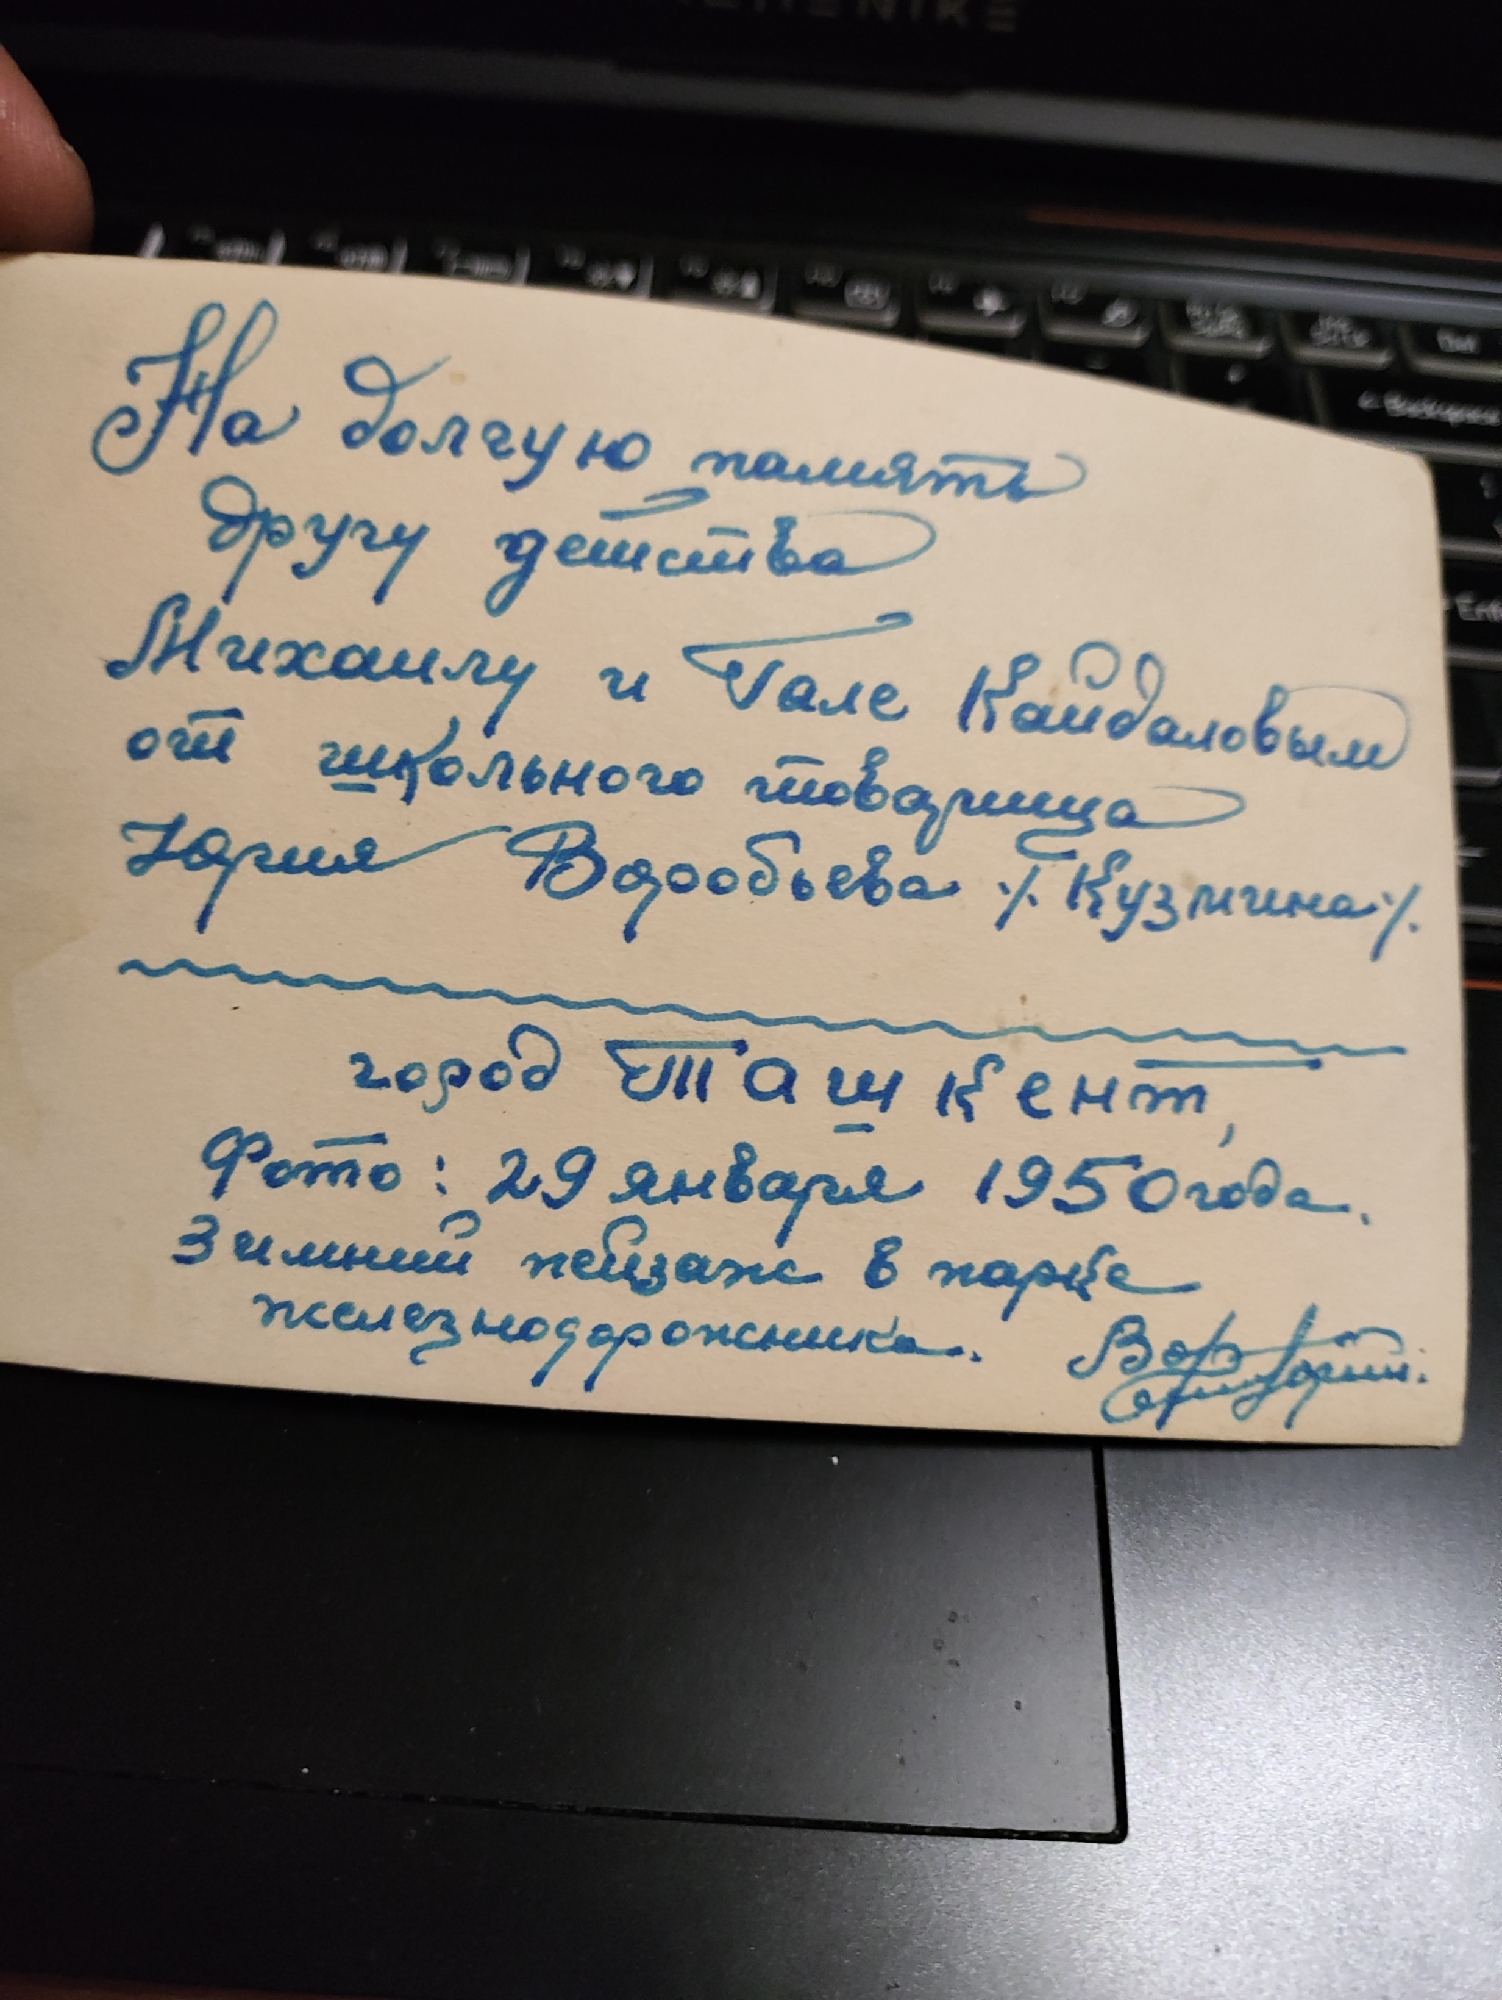 На долгую память
другу детства
Михаилу и Гале Кайдаловым
от школьного товарища
Юрия Воробьева ·/. Кузмина ·/.
город Ташкент,
Фото: 29 января 1950 года.
Зимний пейзаж в парке
железнодорожника.